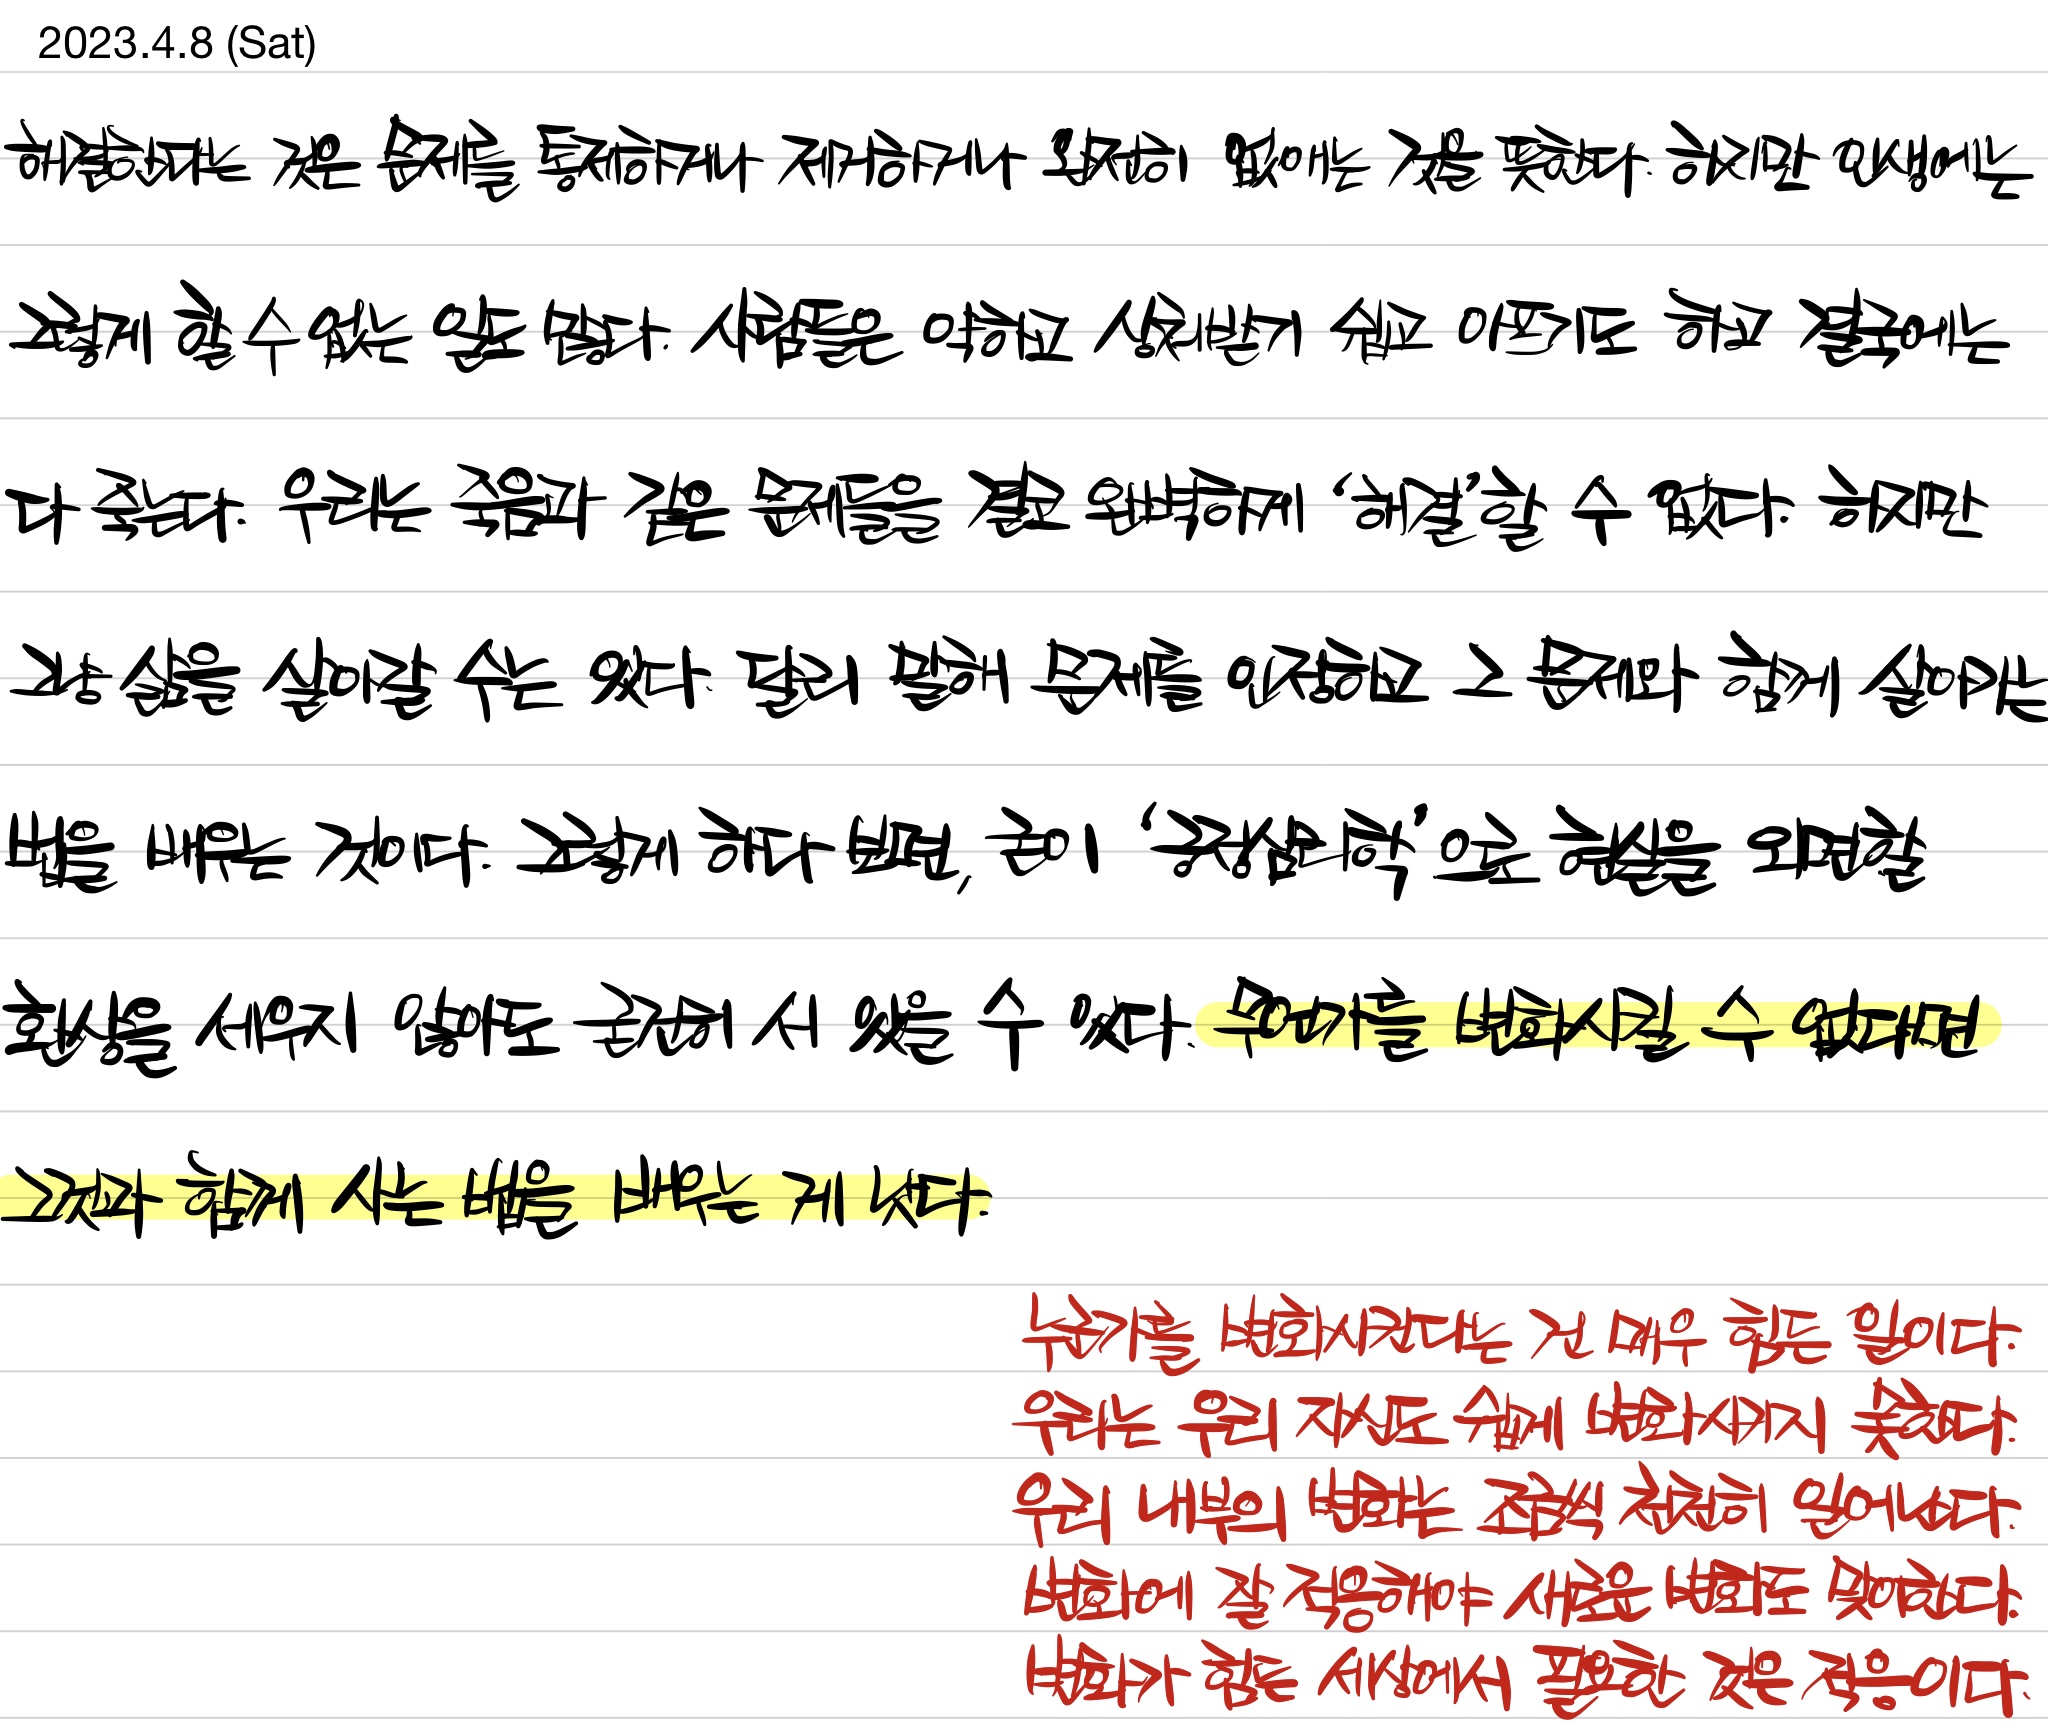 2023.4.8 (Sat)
해결한다는 것은 문제를 통제하거나 제거하거나 완전히 없애는 것을 뜻한다. 하지만 인생에는
그렇게 할 수 없는 일도 많다. 사람들은 약하고 상처받기 쉽고 아프기도 하고 결국에는
다 죽는다. 우리는 죽음과 같은 문제들을 결코 완벽하게 ‘해결’할 수 없다. 하지만
그냥 삶을 살아갈 수는 있다. 달리 말해 문제를 인정하고 그 문제와 함께 살아가는
법을 배우는 것이다. 그렇게 하다 보면, 굳이 ‘긍정심리학’으로 현실을 외면할
환상을 세우지 않아도 굳건히 서 있을 수 있다. 무언가를 변화시킬 수 없다면
그것과 함께 사는 법을 배우는 게 낫다.
누군가를 변화시킨다는 건 매우 힘든 일이다.
우리는 우리 자신도 쉽게 변화시키지 못한다.
우리 내부의 변화는 조금씩 천천히 일어난다.
변화에 잘 적응해야 새로운 변화도 맞이한다.
변화가 힘든 세상에서 필요한 것은 적응이다.